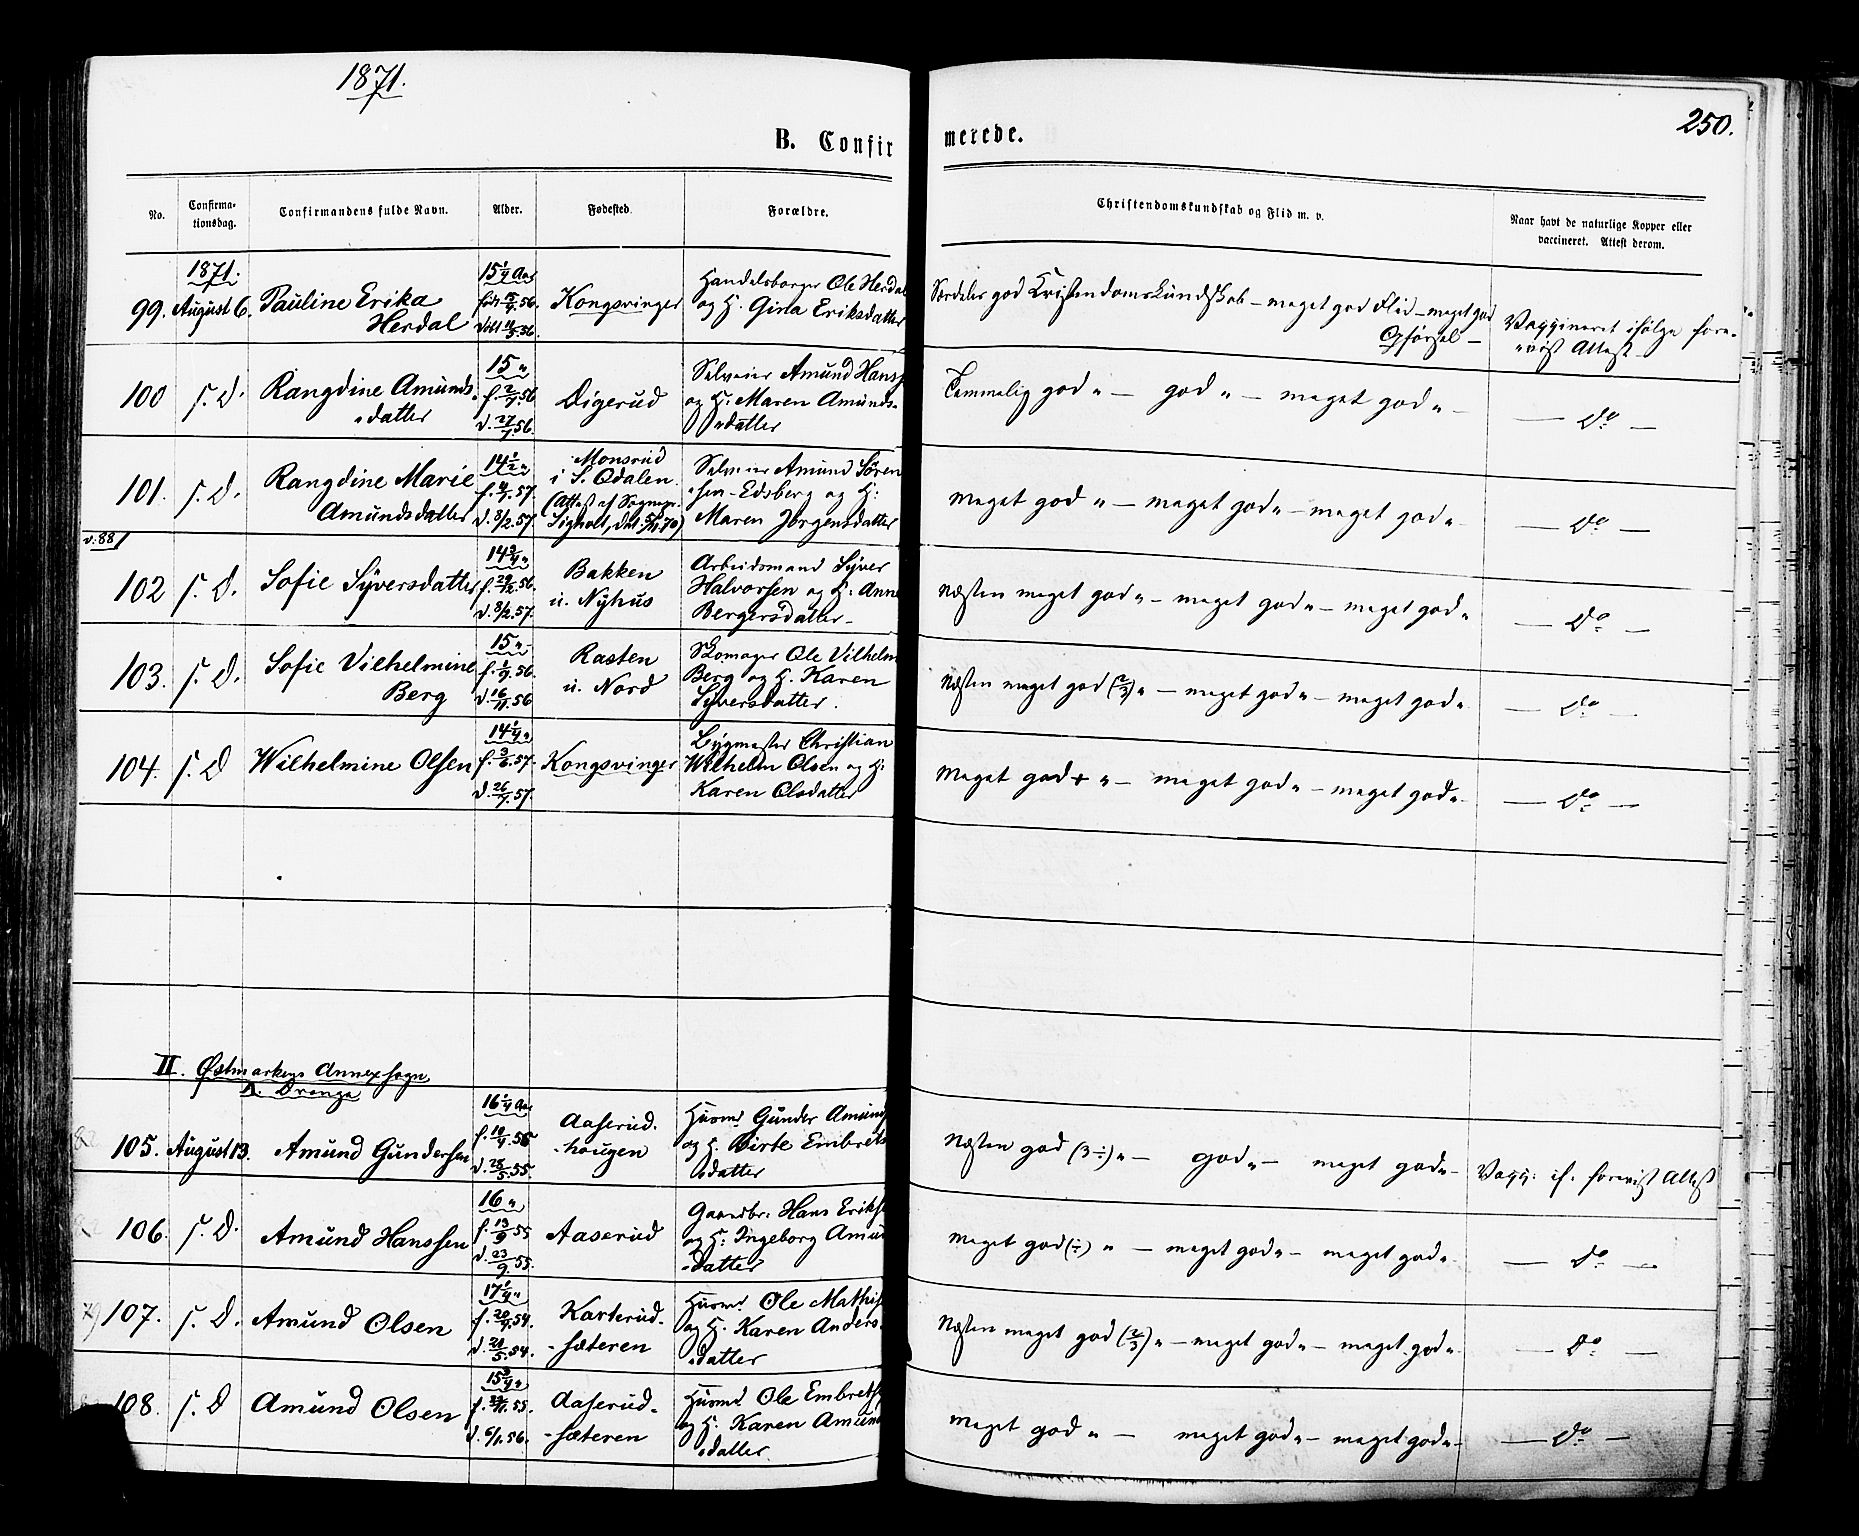 1871.
250.
B. Confirmerede.
No.
Confirma-
tionsdag.
Confirmandens fulde Navn.
Alder.
Fødested.
Forældre.
Christendomskundskab og Flid m. v.
Naar havt de naturlige Kopper eller
vaccineret. Attest derom.
1871.
99. August 6. Pauline Erika
Herdal
15 1/4 Aar
Kongsvinger
Handelsborger Ole Herdal
og H. Eriksdatter
Særdeles god Kristendomskundskab – meget god Flid – meget god
Opførsel –
Vaccineret ifølge fore-
vist Attest
100 s. D. Rangdine Amunds-
datter
15 "
f. 2/7 56
d. 27/7 56.
Digerud
Selveier Amund Hanss
og H: Maren Amunds-
datter
Temmelig god " – god " – meget god " –
– Do –
101. s. D. Rangdine Marie
Amundsdatter
14 1/2 "
d. 8/2 57.
Monsrud
i S. Odalen
(Attest af Sognepr.
Selveier Amund Sören
sen Edsberg og H:
Maren Jørgensdatter
Meget god " – meget god " – meget god " –
– Do –
v. 88
102 s. D. Sofie Syversdatter
14 3/4 "
d. 8/2 57.
Bakken
u. Nyhus
Arbeidsmand Syver
Halvorsen og H: Anne
Bergersdatter –
Næsten meget god " – meget god " – meget god "
– Do –
103. s. D. Sofie Vilhelmine
Berg
15 "
f. 1/9 56.
d. 16/11 56
Rasten
u. Nord
Skomager Ole Vilhelm
Berg og H. Karen
Syversdatter.
Næsten meget god (2/3) " – meget god " – meget god "
– Do –
104. s. D Wilhelmine Olsen
14 1/4 "
f. 3/6 57.
d. 26/7 57.
Kongsvinger
Bygmester Christian
Wilhelm Olsen og H:
Karen Olsdatter
Meget god + " – meget god " – meget god " –
– Do –
II. Østmarkens Annexsogn
A. Drenge
105. August 13. Amund Gundersen
16 1/4 Aar
f. 19/4 55
d. 28/5 55.
Aaserud-
-hougen
Husmd Gunder Amunds
og H. Birte Embrets
datter
Næsten god (3÷) " – god " – meget god " –
Vacc: if. forevist Attest
106. s. D. Amund Hanssen
16 "
f. 13/9 55
d. 23/9 55.
Aaserud
Gaardbr: Hans Eriks
og H: Ingeborg Amun
datter
Meget god (÷) " – meget god " – meget god "
– Do –
79 107. s. D. Amund Olsen
17 1/4 "
f. 20/4 54.
d. 21/5 54.
Karterud-
-sæteren
Husmd Ole Mathis
og H. Karen Anders
datter
Næsten meget god (2/3) " – meget god " – meget god "
– Do –
108. s. D Amund Olsen
15 3/4 "
d. 6/1 56.
Aaserud-
-sæteren
Husmd Ole Embrets
og H. Karen Amund
datter.
Meget god " – meget god " – meget god " –
– Do –